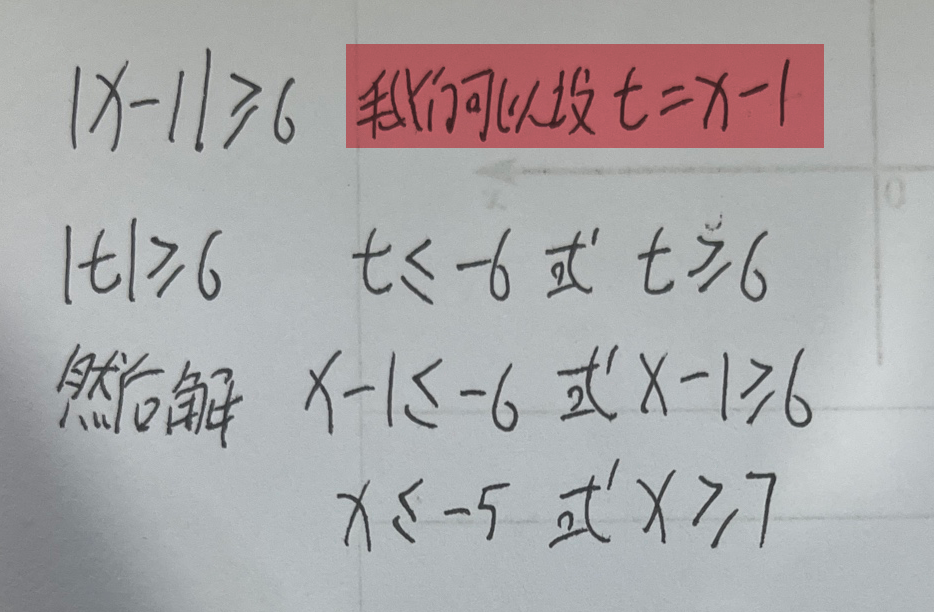 |x-1|≥6 我们可以设 t=x-1
|t|≥6 t≤-6 或 t≥6
然后解 x-1≤-6 或 x-1≥6
x≤-5 或 x≥7
x 0